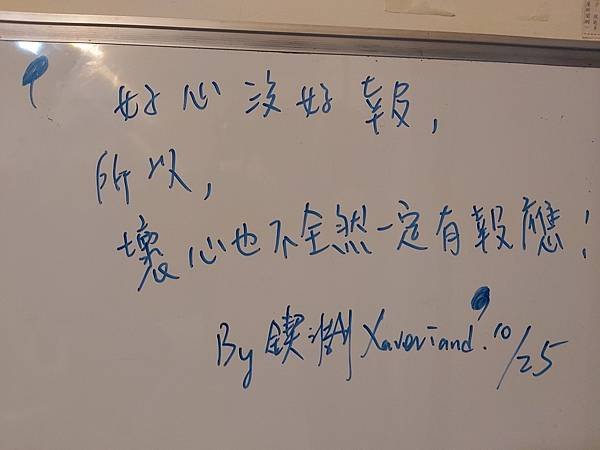 好心沒好報，
所以，
壞心也不全然一定有報應！
By 鍥澍 Xaveriand. 10/25